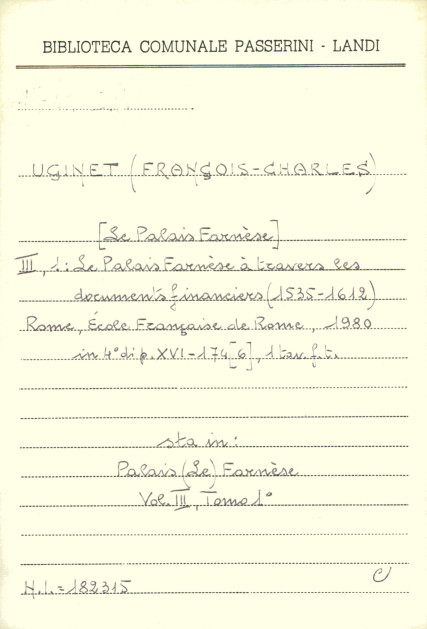 BIBLIOTECA COMUNALE PASSERINI - LANDI
UGINET (FRANÇOIS-CHARLES)
[Le Palais Farnèse]
III, 1: Le Palais Farnèse à travers les
documents financiers (1535-1612)
Rome, École Française de Rome, 1980
in 4° di p. XVI-174 [6], 1 tav. f. t.
sta in:
Palais (Le) Farnèse
Vol. III, Tomo 1°
N.I. = 182315